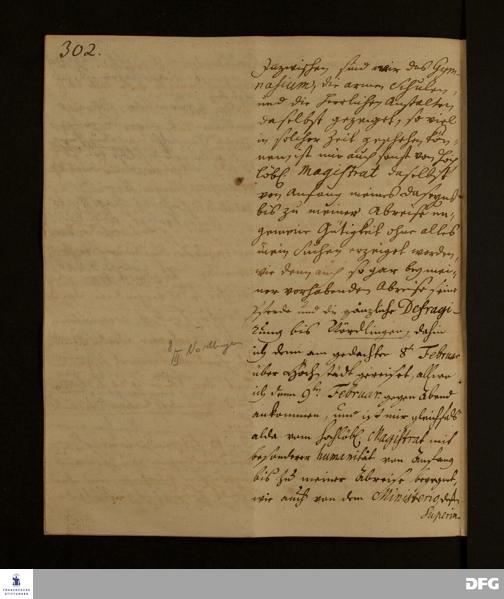 302.
Inzwischen sind mir das Gym-
nasium, die armen Schulen,
und die herrlichen Anstalten
daselbst gezeiget, so viel
in solcher Zeit geschehen kön-
nen, ist mir auch sonst von Hoch
löbl. Magistrat daselbst
von Anfang meines Daseyns
bis zu meiner Abreise un-
gemeine Gütigkeit ohne alles
mein Suchen erzeiget worden,
wie denn auch so gar bey mei-
ner vorhabenden Abreise seine
Pferde und die gänzliche Defragi-
rung bis Nördlingen, dahin
ich denn am gedachten 8t Februar
über Höchstädt gereiset, allwo
ich denn 9ten Februar. gegen Abend
ankommen, und ist mir gleichfals
alda vom hochlöbl. Magistrat mit
besonderer humanität von Anfang
bis zu meiner Abreise begegnet,
wie auch von dem Ministerio,
Superin-
8/II Nördlingen
FRANCKESCHE
STIFTUNGEN
DFG